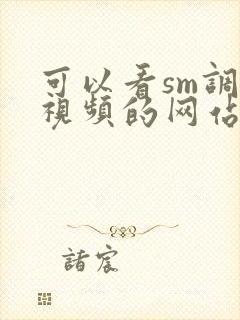 可以看sm調
視頻的网佔
諸宸